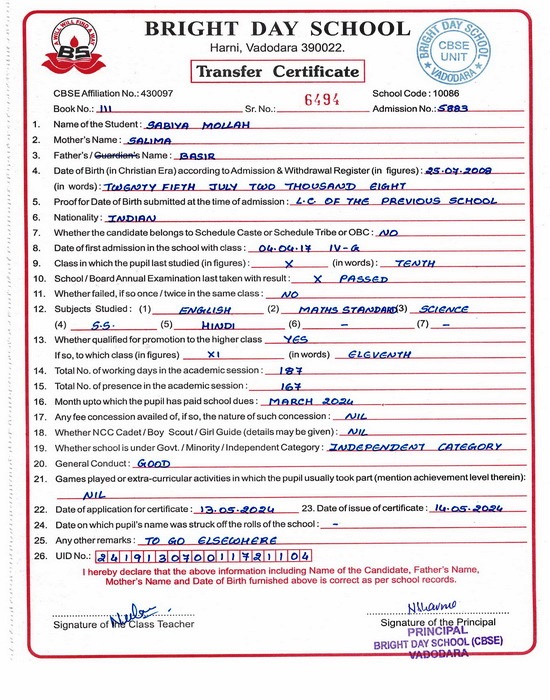 A WILL WILL FIND A WAY
BS
BRIGHT DAY SCHOOL
Harni, Vadodara 390022.
Transfer Certificate
BRIGHT DAY SCHOOL
CBSE
UNIT
VADODARA
CBSE Affiliation No.: 430097 School Code : 10086
Book No.: III Sr. No.: 6494 Admission No.: 5883
1. Name of the Student : SABIYA MOLLAH
2. Mother's Name : SALIMA
3. Father's / Guardian's Name : BASIR
4. Date of Birth (in Christian Era) according to Admission & Withdrawal Register (in figures) : 25.07.2008
(in words) : TWENTY FIFTH JULY TWO THOUSAND EIGHT
5. Proof for Date of Birth submitted at the time of admission : L.C OF THE PREVIOUS SCHOOL
6. Nationality : INDIAN
7. Whether the candidate belongs to Schedule Caste or Schedule Tribe or OBC : NO
8. Date of first admission in the school with class : 04.04.17 IV-G
9. Class in which the pupil last studied (in figures) : X (in words) : TENTH
10. School / Board Annual Examination last taken with result : X PASSED
11. Whether failed, if so once / twice in the same class : NO
12. Subjects Studied : (1) ENGLISH (2) MATHS STANDARD (3) SCIENCE
(4) S.S. (5) HINDI (6) - (7) -
13. Whether qualified for promotion to the higher class YES
If so, to which class (in figures) XI (in words) ELEVENTH
14. Total No. of working days in the academic session : 187
15. Total No. of presence in the academic session : 167
16. Month upto which the pupil has paid school dues : MARCH 2024
17. Any fee concession availed of, if so, the nature of such concession : NIL
18. Whether NCC Cadet / Boy Scout / Girl Guide (details may be given) : NIL
19. Whether school is under Govt. / Minority / Independent Category : INDEPENDENT CATEGORY
20. General Conduct : GOOD
21. Games played or extra-curricular activities in which the pupil usually took part (mention achievement level therein):
NIL
22. Date of application for certificate : 13.05.2024 23. Date of issue of certificate : 14.05.2024
24. Date on which pupil's name was struck off the rolls of the school : -
25. Any other remarks : TO GO ELSEWHERE
26. UID No.: 241913070011721104
I hereby declare that the above information including Name of the Candidate, Father's Name,
Mother's Name and Date of Birth furnished above is correct as per school records.
Signature of the Class Teacher Signature of the Principal
PRINCIPAL
BRIGHT DAY SCHOOL (CBSE)
VADODARA